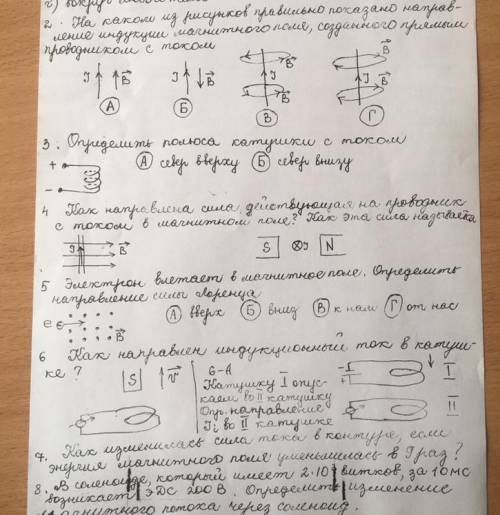 2. На каком из рисунков правильно показано направ-
ление индукции магнитного поля, созданного прямым
проводником с током
I B I B I B I B
А Б В Г
3. Определить полюса катушки с током
+ А север вверху Б север внизу
-
4 Как направлена сила, действующая на проводник
с током в магнитном поле? Как эта сила называется
I B S I N
5 Электрон влетает в магнитное поле. Определить
направление силы Лоренца
e B А вверх Б вниз В к нам Г от нас
6 Как направлен индукционный ток в катуш-
ке?
S v
6-А
Катушку I опус-
каем во II катушку
Опр. направление
Ii во II катушке
I
II
7. Как изменилась сила тока в контуре, если
энергия магнитного поля уменьшилась в 9 раз?
8. В соленоиде, который имеет 2·10 витков, за 10 мс
возникает ЭДС 200 В. Определить изменение
магнитного потока через соленоид.